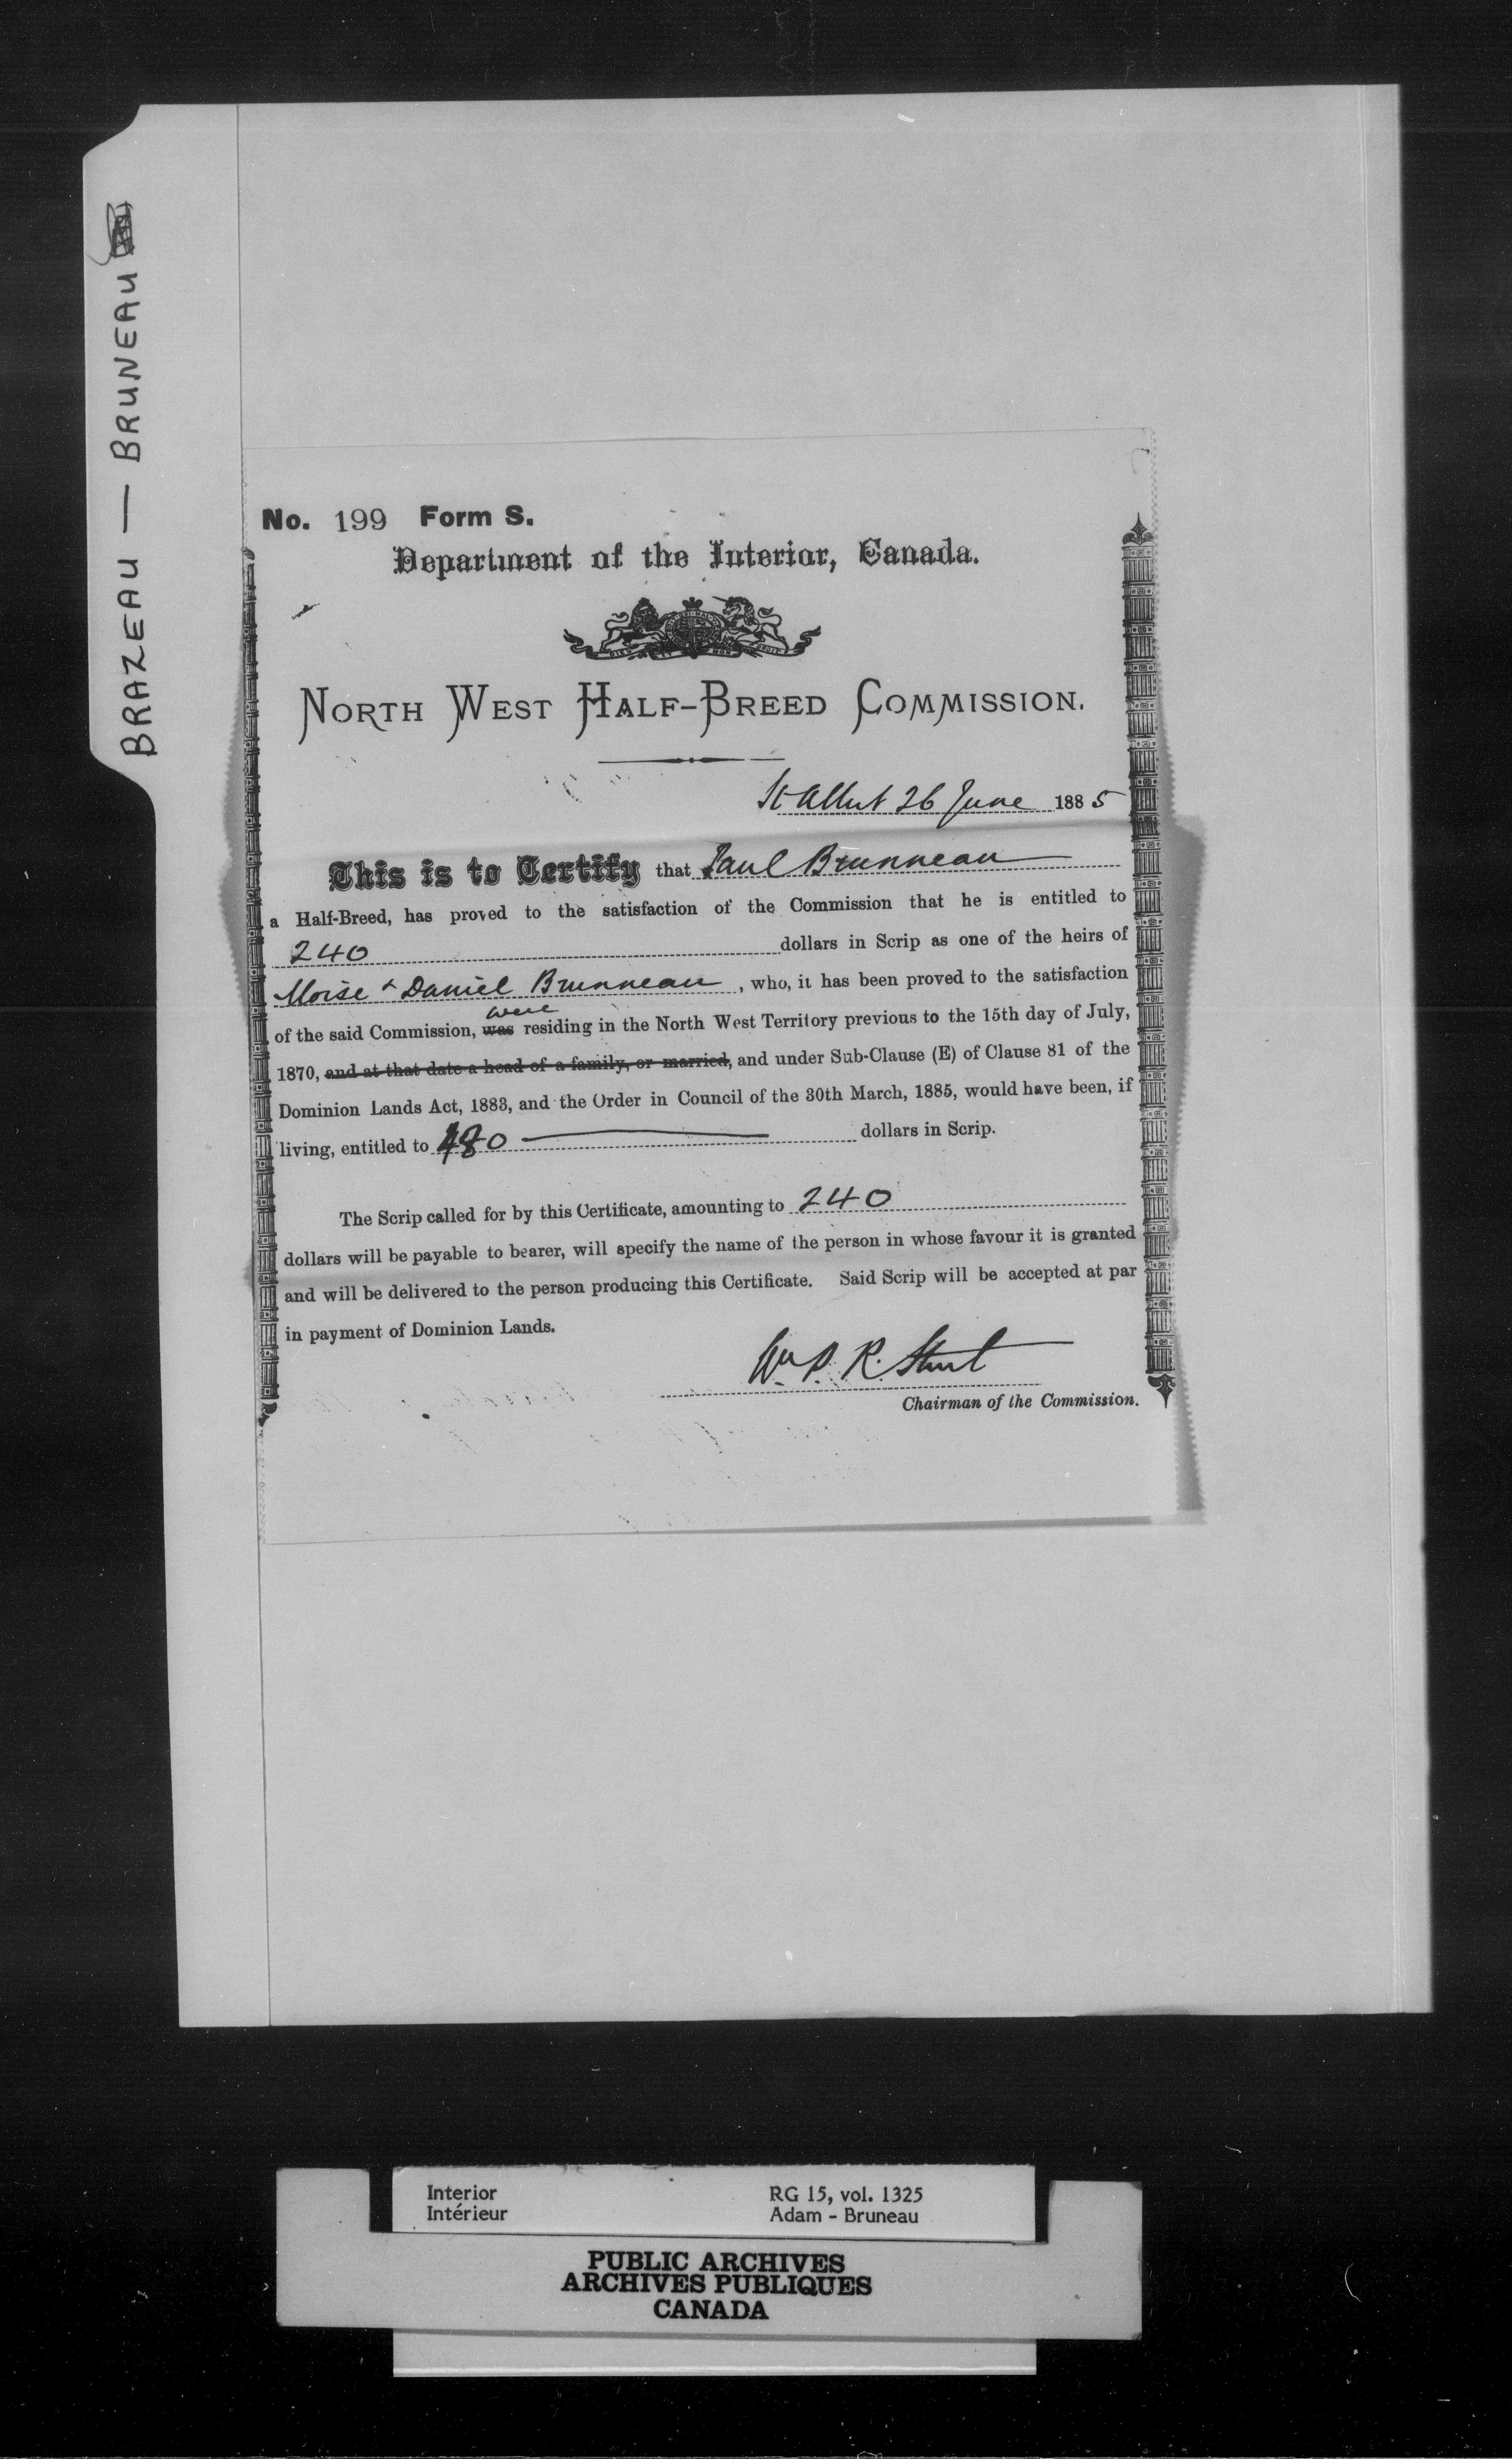 BRAZEAU — BRUNEAU
No. 199 Form S.
Department of the Interior, Canada.
NORTH WEST HALF-BREED COMMISSION.
St Albert 26 June 1885
This is to Certify that Paul Brunneau
a Half-Breed, has proved to the satisfaction of the Commission that he is entitled to
240 dollars in Scrip as one of the heirs of
Moise & Daniel Brunneau, who, it has been proved to the satisfaction
were
of the said Commission, was residing in the North West Territory previous to the 15th day of July,
1870, and at that date a head of a family, or married, and under Sub-Clause (E) of Clause 81 of the
Dominion Lands Act, 1883, and the Order in Council of the 30th March, 1885, would have been, if
living, entitled to 480 dollars in Scrip.
The Scrip called for by this Certificate, amounting to 240
dollars will be payable to bearer, will specify the name of the person in whose favour it is granted
and will be delivered to the person producing this Certificate. Said Scrip will be accepted at par
in payment of Dominion Lands.
Wm P. R. Street
Chairman of the Commission.
Interior RG 15, vol. 1325
Intérieur Adam - Bruneau
PUBLIC ARCHIVES
ARCHIVES PUBLIQUES
CANADA